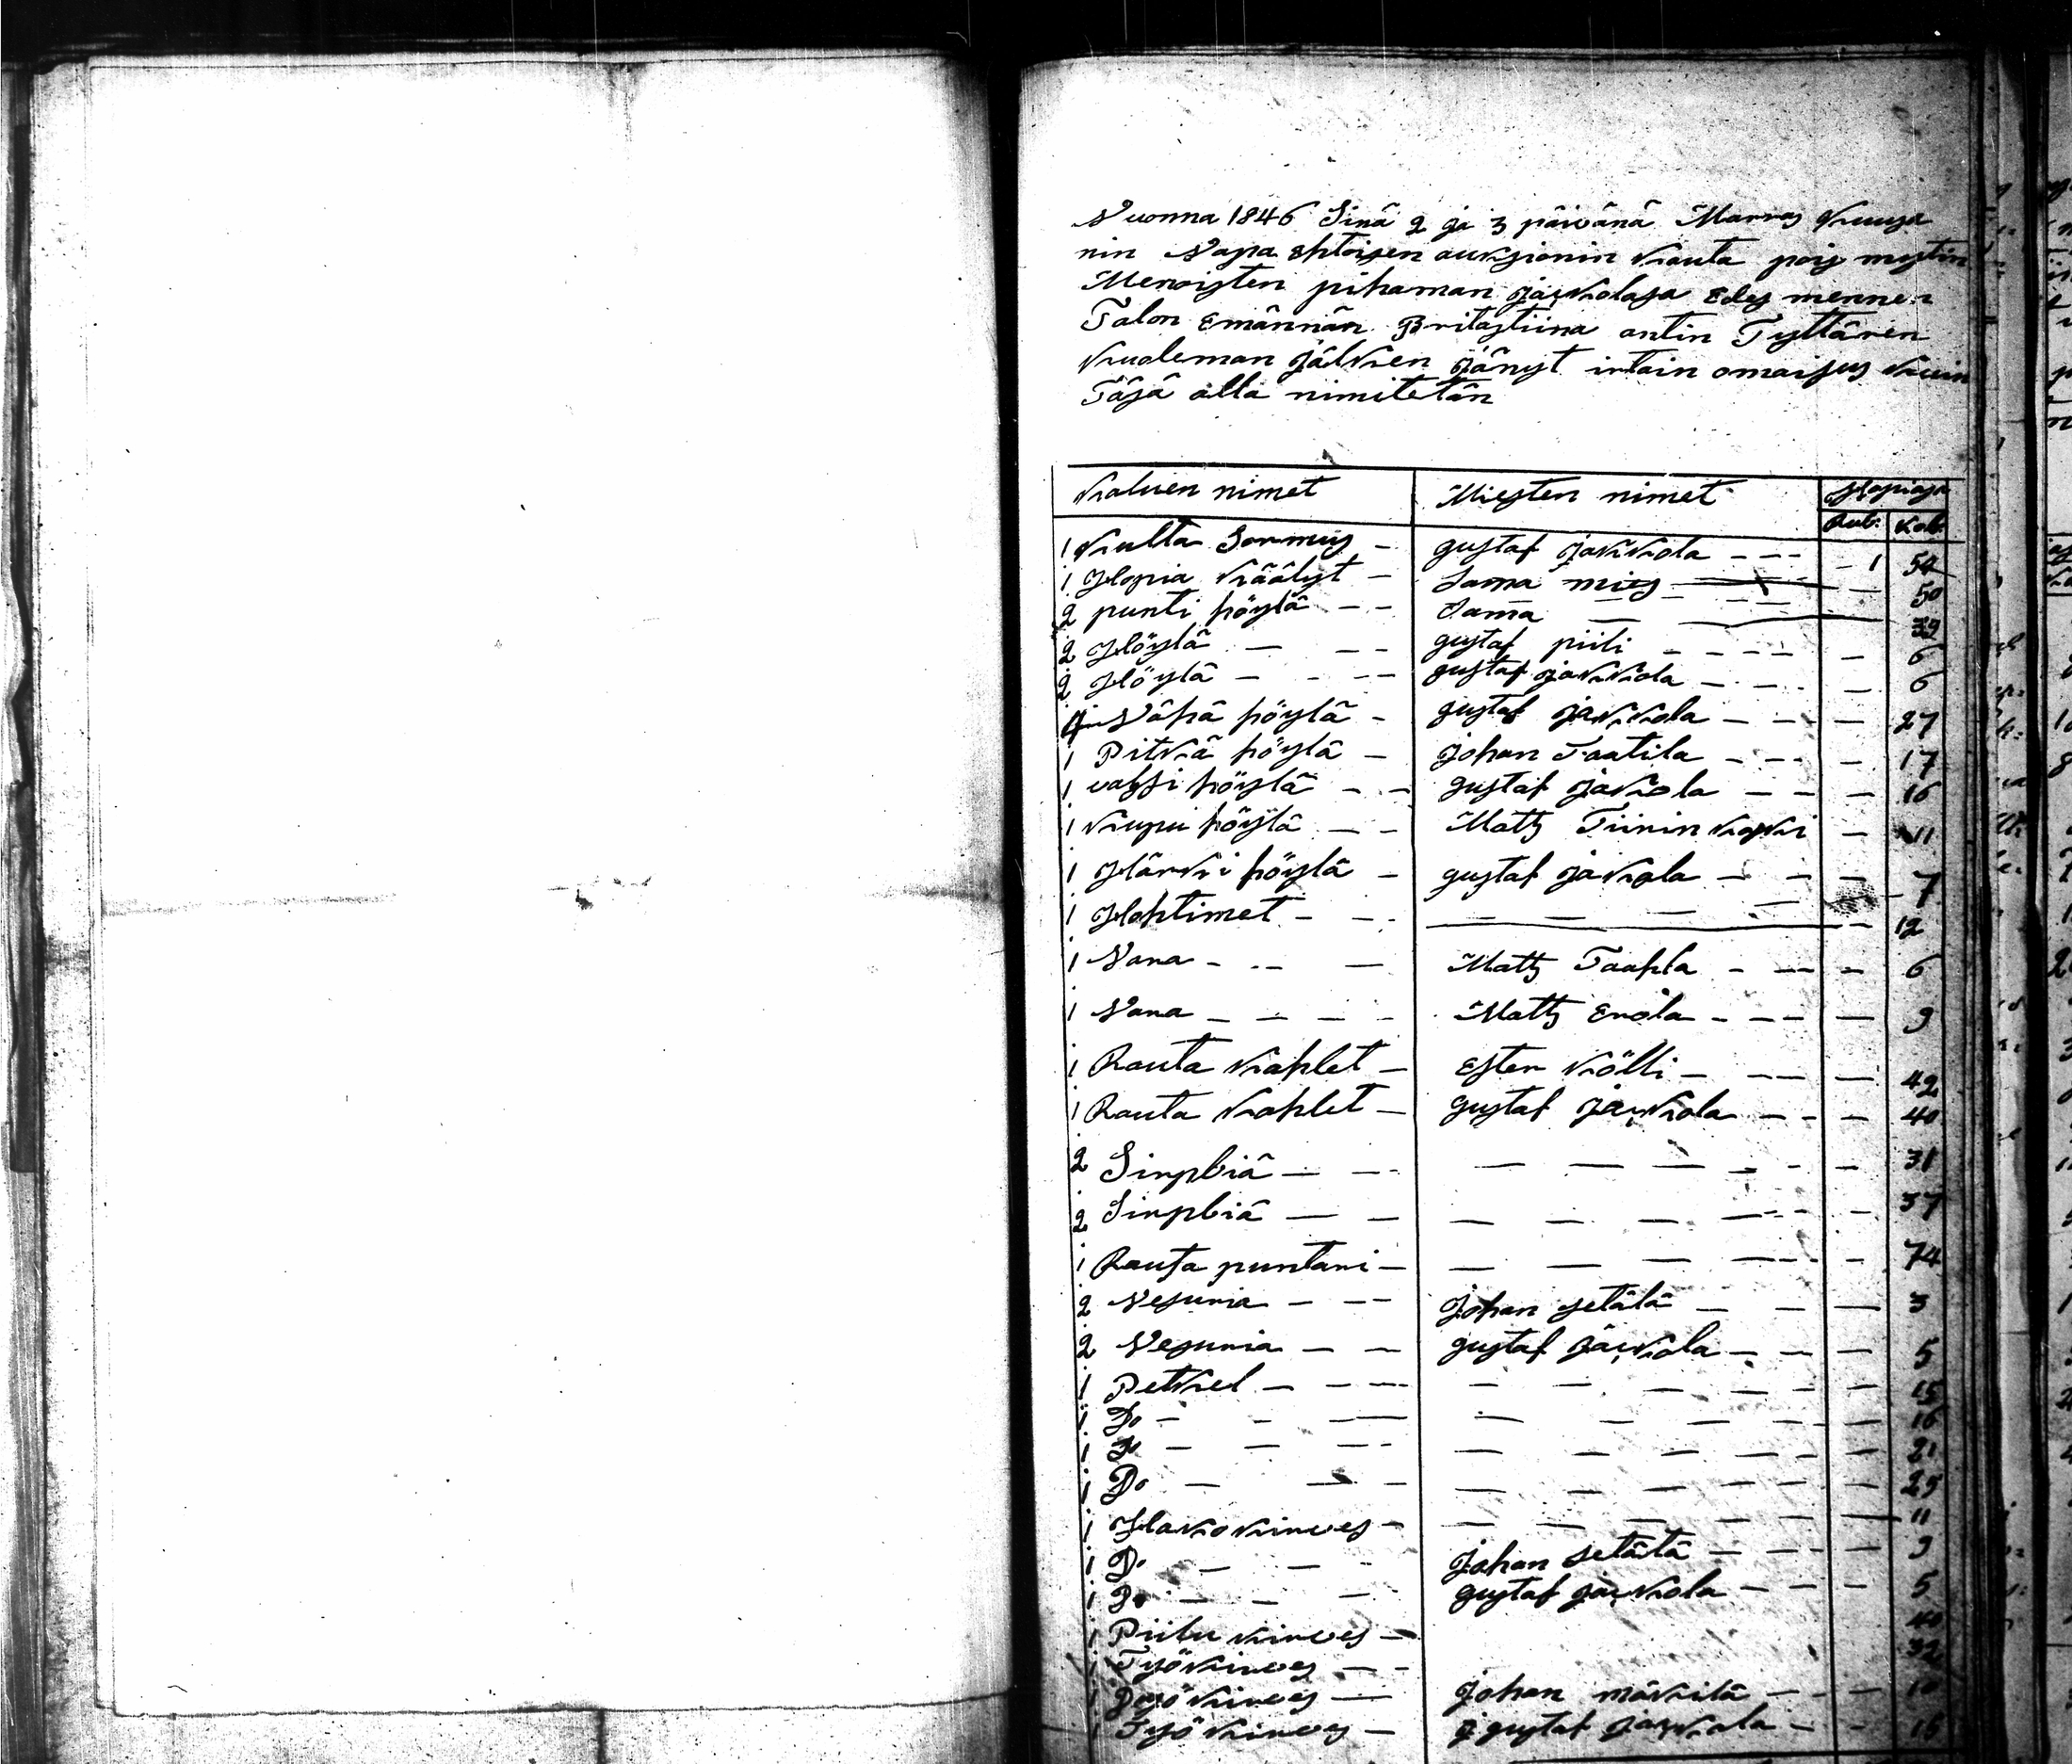 Vuonna 1846 Sinä 2 ja 3 päivänä Marras kuusa
nin Vapa Ehtoisen auksionin kauta pois mystin
Meroisten pihaman jaskolasa Edes mennen
Talon Emännän Britastiina antin Tyttären
kuoleman jälken jänyt irtain omaisus kuin
Täsä alla nimitetän
Kaluen nimet Miesten nimet Hopiasa
Rub. Kob.
1 Kulta Sormus - gustaf jakkola - - - 1 50
1 Hopia käälyt - Sama mies 50
2 punti höylä - - Sama 39
2 Höylä - - - gustaf piili - - - - 6
2 Höylä - - - gustaf jakkola - - - 6
Vähä höylä - gustaf jakkola - - - 27
1 Pitkä höylä - Johan Taatila - - - 17
1 vahsi höylä - - gustaf jakola - - - 16
1 kupu höylä - - Matts Tiirinkoski - 11
1 Härki höylä - gustaf jakola - - - 7
1 Hohtimet - - - - - - 12
1 Nara - - - Matts Taahla - - - 6
1 Nara - - - - Matts Erola - - - 9
1 Rauta kahlet - Ester kölli - - - 42
1 Rauta kahlet - gustaf jaskola - - - 40
2 Sirpbiä - - - - - - - 31
2 Sirpbiä - - - - - - 37
1 Rauta puntari - - - - - 74
2 Vesuria - - Johan setälä - - - 3
2 Vesuria - - gustaf jaskola - - - 5
1 Petkel - - - - - - - 15
1 Do - - - - - - - 16
1 Do - - - - - - - 21
1 Do - - - - - - - 25
1 Hakokirves - - - - - 11
1 Do - - - Johan setälä - - - 9
1 Do - - - gustaf jaskola - - - 5
1 Piilu kirves - 40
1 Työkirves - - 32
1 Työ kirves - Johan mäkilä - - - 10
1 Työ kirves - gustaf jaskola - 15